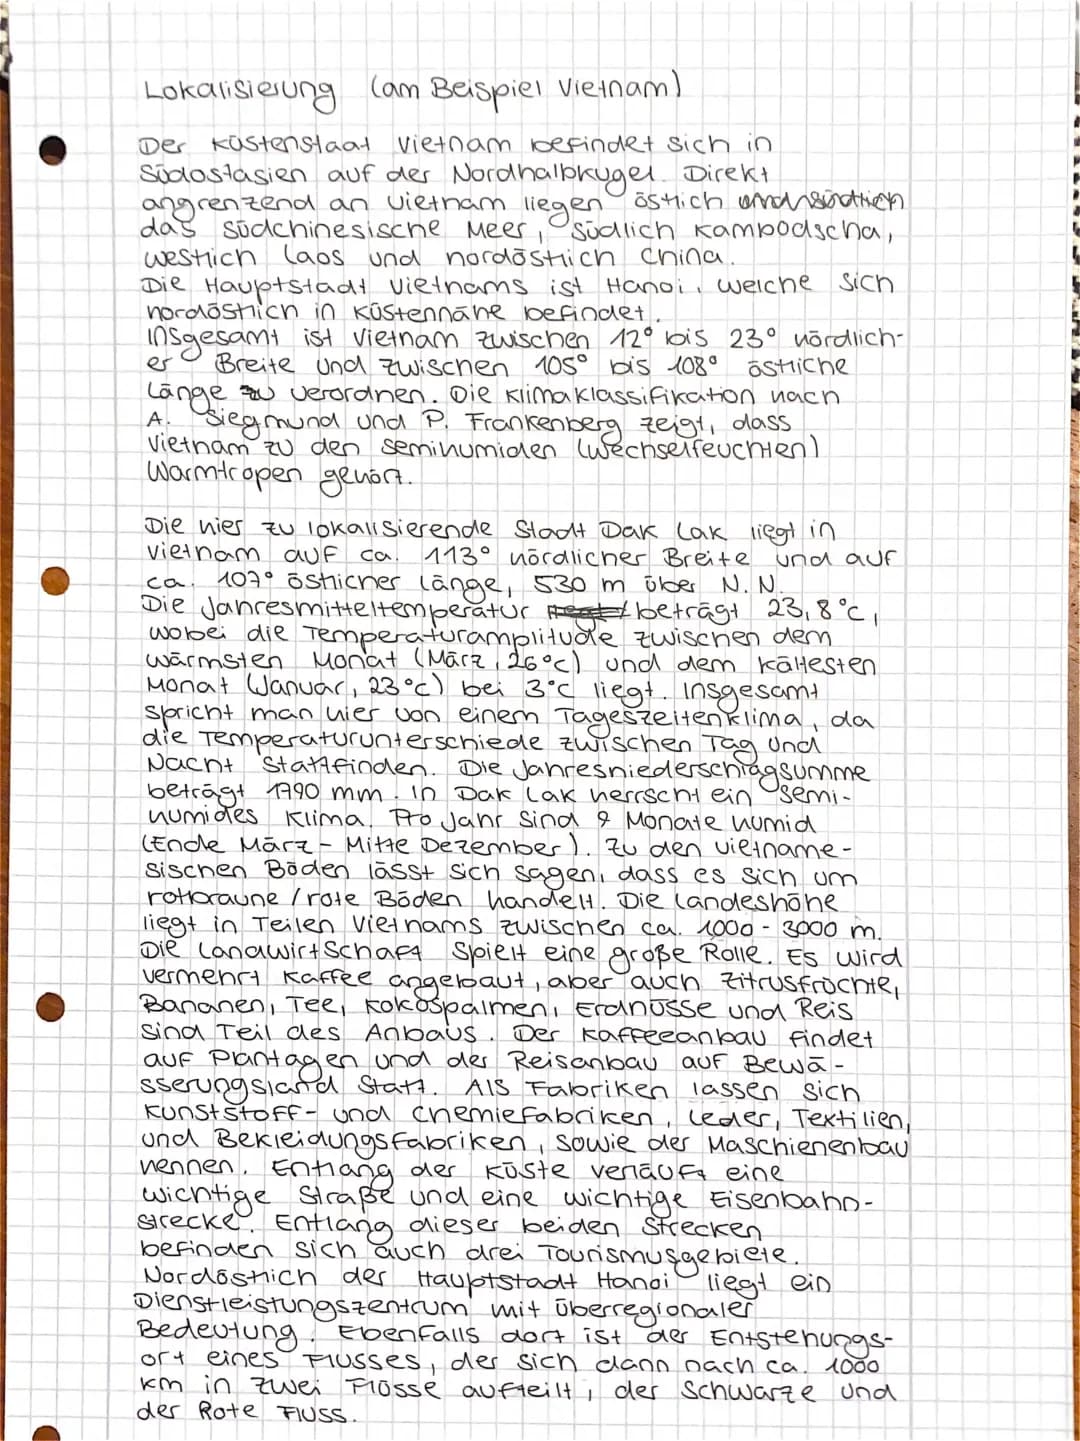 Lokalisierung (am Beispiel Vietnam)
Der Küstenstaat Vietnam befindet sich in
Südostasien auf der Nordhalbkugel. Direkt
angrenzend an Vietnam liegen östlich und südlich
das Südchinesische Meer, südlich Kambodscha,
westlich Laos und nordöstlich China.
Die Hauptstadt Vietnams ist Hanoi, welche sich
nordöstlich in Küstennähe befindet.
Insgesamt ist Vietnam zwischen 12° bis 23° nördlich-
er Breite und zwischen 105° bis 108° östliche
Länge zu verordnen. Die Klimaklassifikation nach
A. Siegmund und P. Frankenberg zeigt, dass
Vietnam zu den semihumiden (wechselfeuchten)
Warmtropen gehört.
Die hier zu lokalisierende Stadt Dak Lak liegt in
Vietnam auf ca. 113° nördlicher Breite und auf
ca. 107° östlicher Länge, 530 m über N.N.
Die Jahresmitteltemperatur beträgt 23,8°C,
wobei die Temperaturamplitude zwischen dem
wärmsten Monat (März, 26°C) und dem kältesten
Monat (Januar, 23°C) bei 3°C liegt. Insgesamt
spricht man hier von einem Tageszeitenklima, da
die Temperaturunterschiede zwischen Tag und
Nacht stattfinden. Die Jahresniederschlagsumme
beträgt 1790 mm. In Dak Lak herrscht ein semi-
humides Klima. Pro Jahr sind 9 Monate humid
(Ende März - Mitte Dezember). Zu den vietname-
sischen Böden lässt sich sagen, dass es sich um
rotbraune / rote Böden handelt. Die Landeshöhe
liegt in Teilen Vietnams zwischen ca. 1000 - 3000 m.
Die Landwirtschaft spielt eine große Rolle. Es wird
vermehrt Kaffee angebaut, aber auch Zitrusfrüchte,
Bananen, Tee, Kokospalmen, Erdnüsse und Reis
sind Teil des Anbaus. Der Kaffeeanbau findet
auf Plantagen und der Reisanbau auf Bewä-
sserungsland statt. Als Fabriken lassen sich
Kunststoff- und Chemiefabriken, Leder, Textilien,
und Bekleidungsfabriken, sowie der Maschienenbau
nennen. Entlang der Küste verläuft eine
wichtige Straße und eine wichtige Eisenbahn-
strecke. Entlang dieser beiden Strecken
befinden sich auch drei Tourismusgebiete.
Nordöstlich der Hauptstadt Hanoi liegt ein
Dienstleistungszentrum mit überregionaler
Bedeutung. Ebenfalls dort ist der Entstehungs-
ort eines Flusses, der sich dann nach ca. 1000
km in zwei Flüsse aufteilt, der Schwarze und
der Rote Fluss.